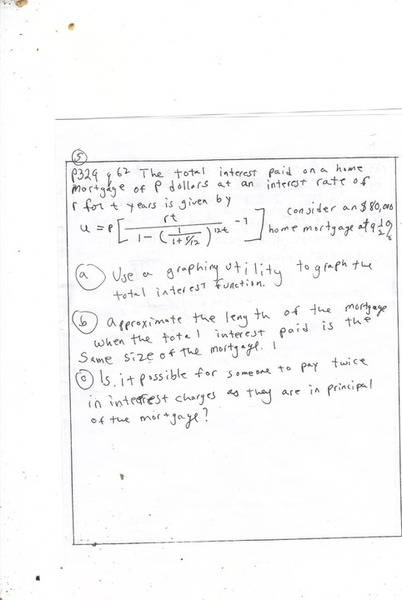 5
P329 #62 The total interest paid on a home
mortgage of P dollars at an interest rate of
r for t years is given by
u = P [ rt / (1 - (1 / (1 + r/12))^12t) - 1 ] Consider an $80,000
home mortgage at 9 1/2 %
a Use a graphing utility to graph the
total interest function.
b approximate the length of the mortgage
when the total interest paid is the
Same size of the mortgage.
c Is it possible for someone to pay twice
in interest charges as they are in principal
of the mortgage?